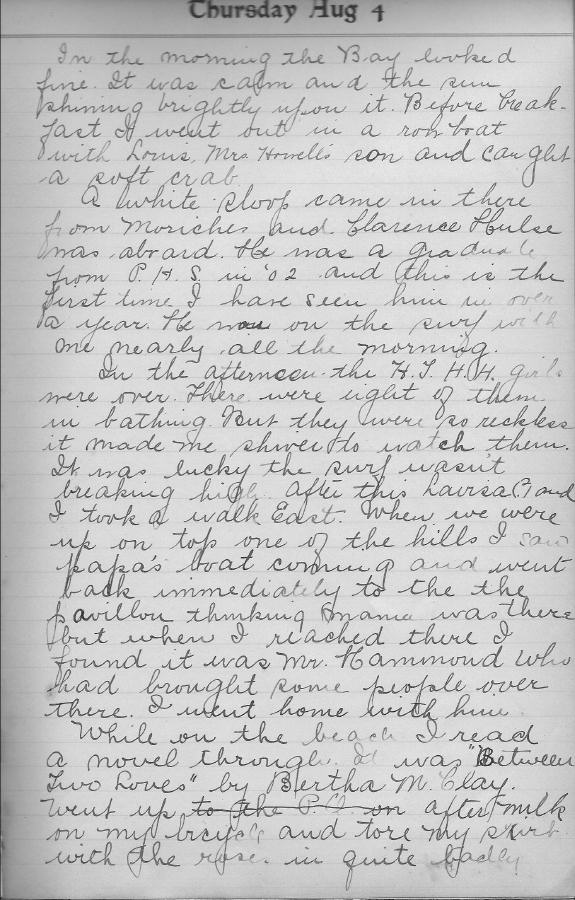 Thursday Aug 4
In the morning the Bay looked
fine. It was calm and the sun
shining brightly upon it. Before break-
fast I went out in a row boat
with Louis, Mrs Howell's son and caught
a soft crab.
A white sloop came in there
from Moriches and Clarence Hulse
was aboard. He was a graduate
from P. H. S. in '02 and this is the
first time I have seen him in over
a year. He was on the surf with
me nearly all the morning.
In the afternoon the H. J. H. H. girls
were over. There were eight of them
in bathing. But they were so reckless
it made me shiver to watch them.
It was lucky the surf wasn't
breaking high. After this Lavisa(?) and
I took a walk East. When we were
up on top one of the hills I saw
papa's boat coming and went
back immediately to the the
pavillon thinking mama was there
but when I reached there I
found it was Mr. Hammond who
had brought some people over
there. I went home with him.
While on the beach I read
a novel through. It was "Between
Two Loves" by Bertha M. Clay.
Went up to the P.O. on after milk
on my bicycle and tore my skirt
with the in quite badly